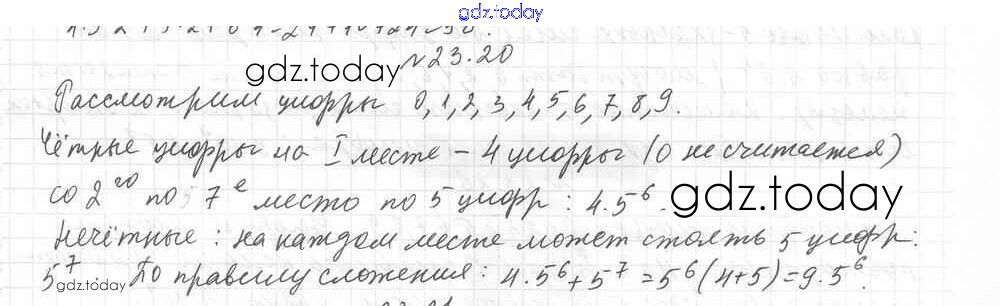 gdz.today
№23.20
gdz.today
Рассмотрим цифры 0,1,2,3,4,5,6,7,8,9.
Чётные цифры на I месте – 4 цифры (0 не считается)
со 2го по 7е место по 5 цифр: 4·5⁶.
gdz.today
Нечётные: на каждом месте может стоять 5 цифр:
5⁷ По правилу сложения: 4·5⁶+5⁷=5⁶(4+5)=9·5⁶.
gdz.today